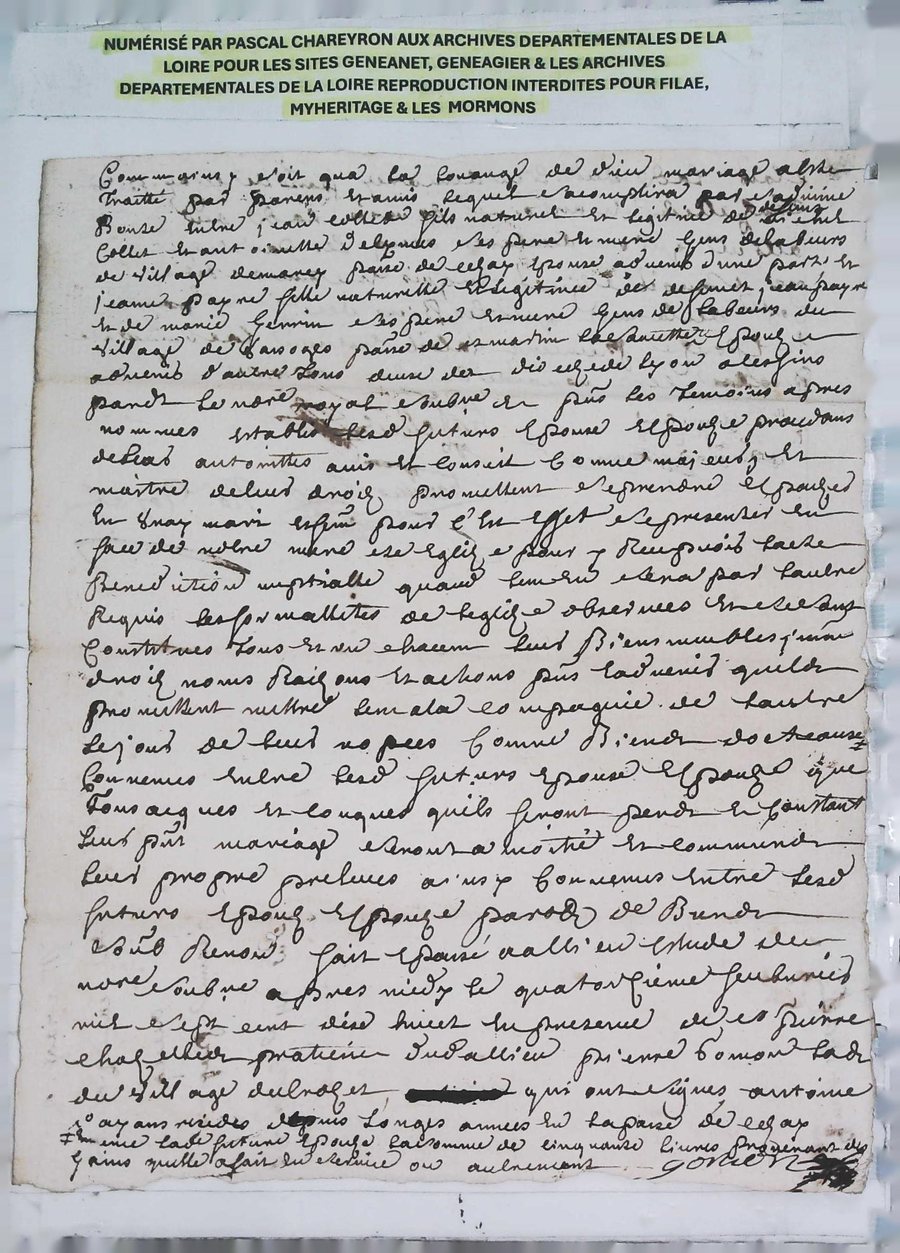 NUMÉRISÉ PAR PASCAL CHAREYRON AUX ARCHIVES DEPARTEMENTALES DE LA
LOIRE POUR LES SITES GENEANET, GENEAGIER & LES ARCHIVES
DEPARTEMENTALES DE LA LOIRE REPRODUCTION INTERDITES POUR FILAE,
MYHERITAGE & LES MORMONS
Comme ainsy soit qua la louange de dieu mariage a este
Traitté par parens et amis lequel sacomplira par sa divine
Bonte entre jean Collet fils naturel et legitime de
Collet et antoinette ses pere et mere gens de labeurs
de village de parse de epoux advenir d'une part et
jeanne payre fille naturelle et legitime de defunct jean payre
et de marie ses pere et mere gens de labeurs du
village de parse de st martin Epouze
advenir d'autre tous deux de diocese de lyon a les fins
pardt le nore royal soubné et pnt les temoins apres
nommes establis lesd futurs Epoux et Epouze procedans
de leurs autorittes avis et conseil comme majeurs et
maistre de leurs droits promettent se prendre et Epouzer
en vray mary et fem pour c'est effet se presenter en
face de nostre mere ste Eglize pour y recepvoir la ste
Benediction nuptialle quand lun en sera par lautre
Requis les formallites de leglize observees et se sont
constitues tous et un chacun leurs Biens meubles jmeu
droits noms Raizons et actions pnt et advenir quils
promettent mettre lun a la compagnie de lautre
le jour de leurs nopces comme Biens
convenus entre lesd futurs epoux et Epouze que
Tous acques et conques quils feront pendt et constant
leurs pnt mariage seront a moitié et commun
leurs propre preleves ainsy convenus entre lesd
futurs Epoux et Epouze
soub Renon fait et passé a allieu Estude du
nore soubné apres midy le quatorzieme feubvrier
mil sept cent dixe huict en presence de sr pierre
praticien dud allieu pierre
du village du qui ont signes antoine
ayans rezides depuis longes annees en la parse de
lade future Epouze la somme de cinquante livres provenant des
gains quelle a fait en service ou autrement